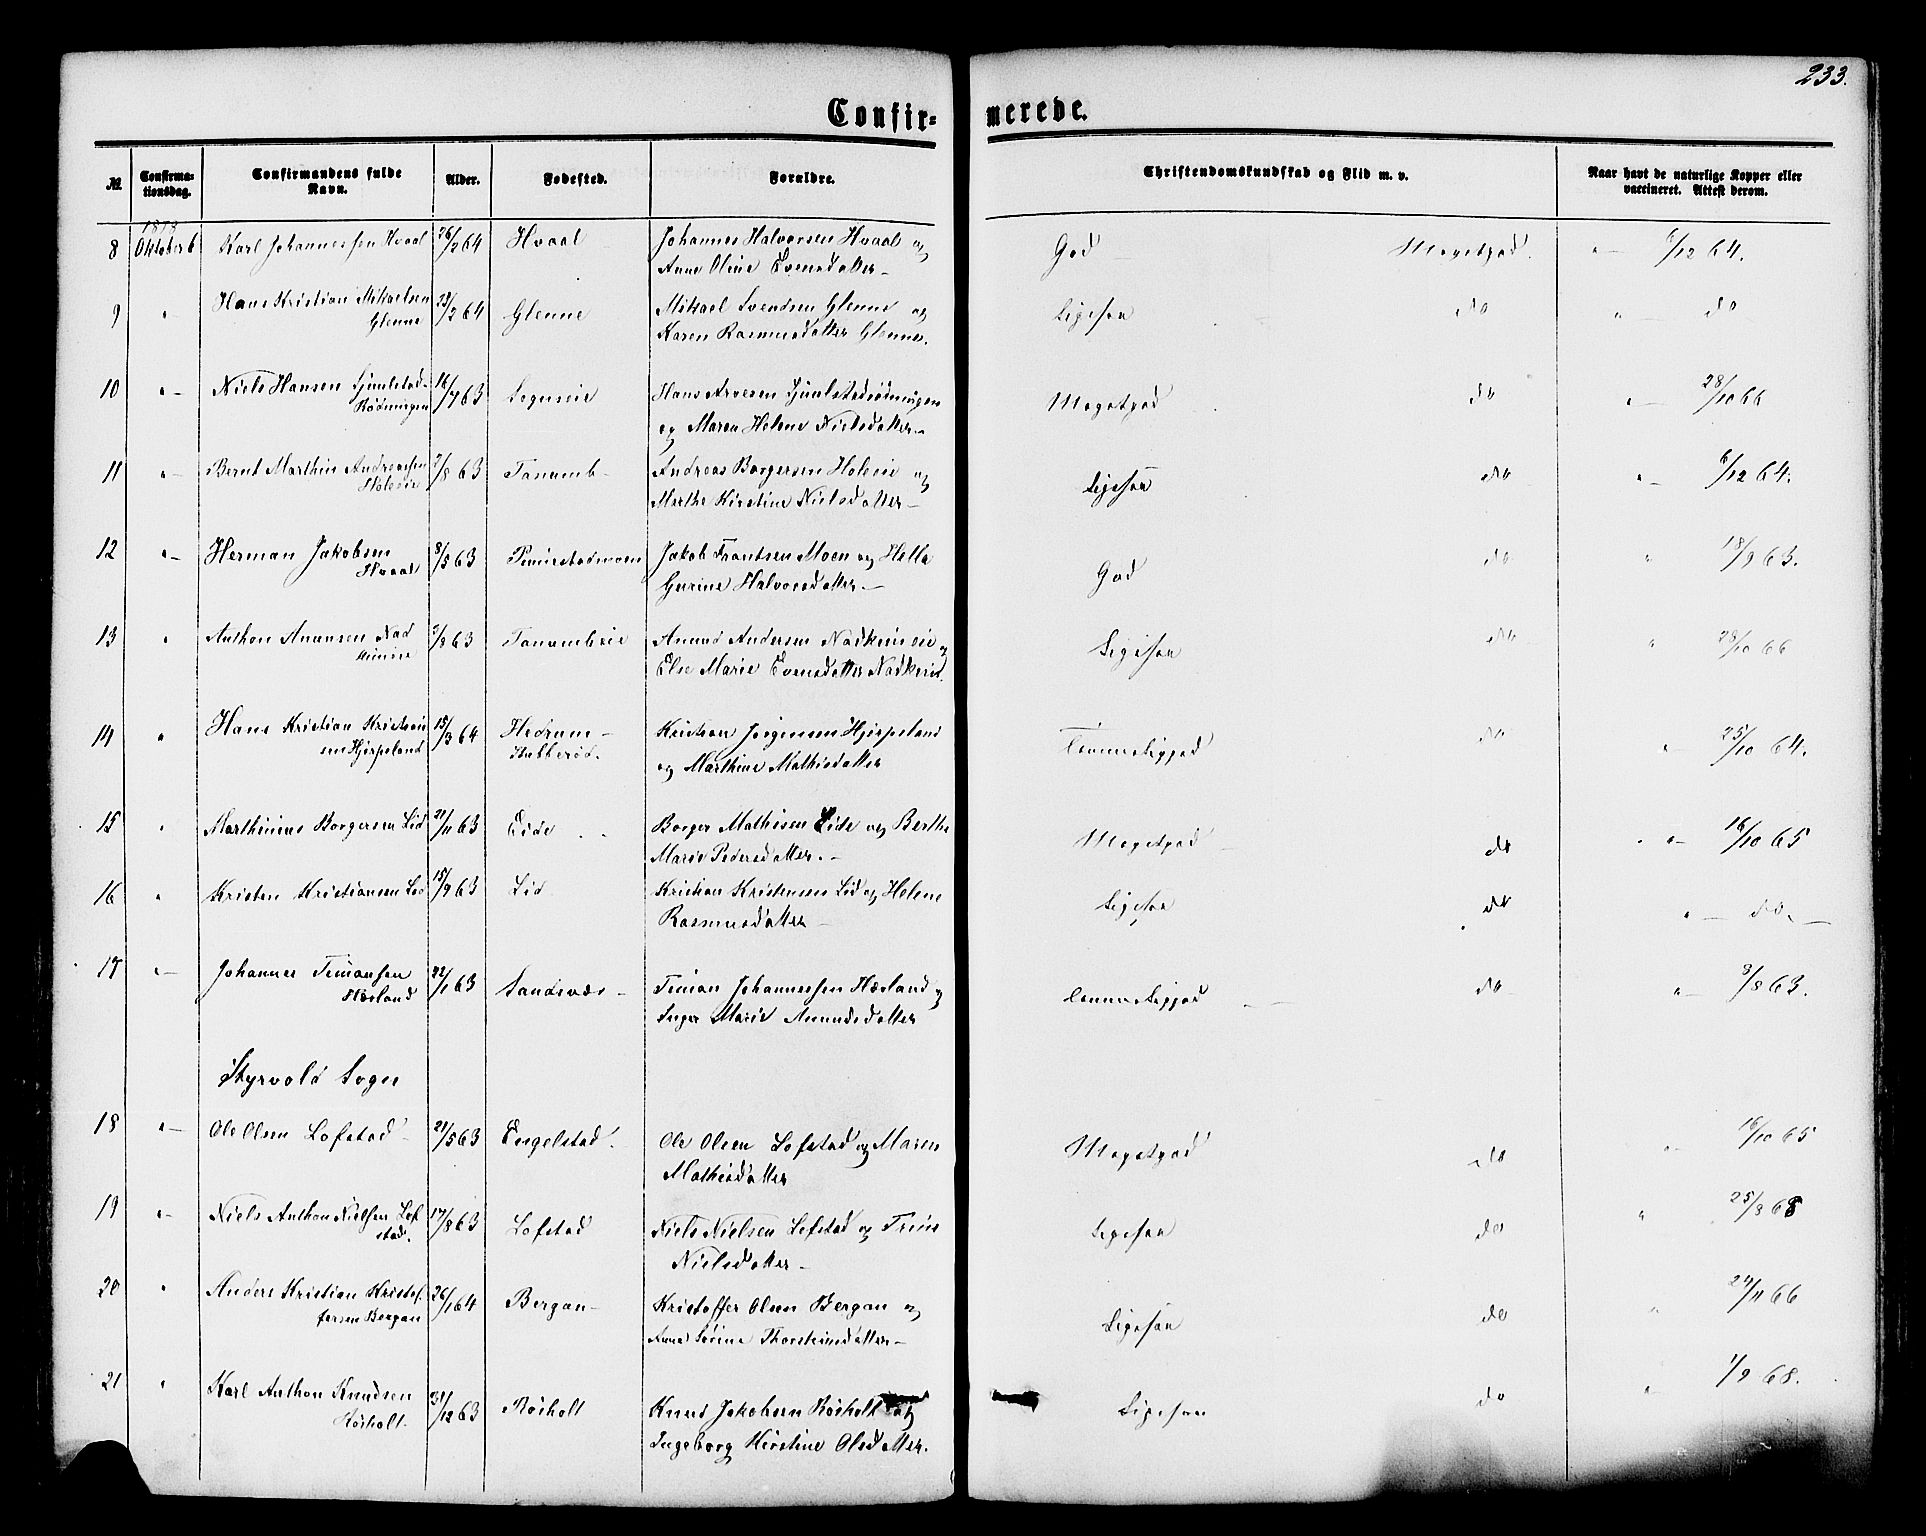 233.
Confir- merede.
№ Confirma- tionsdag. Confirmandens fulde Navn. Alder. Fødested. Forældre. Christendomskundskab og Flid m. v. Naar havt de naturlige Kopper eller vaccineret. Attest derom.
1878
8 Oktober 6 Karl Johannessen Hvaal 26/2 64 Hvaal Johannes Halvorsen Hvaal og God Megetgod. "— 6/12 64.
Anne Oline Evensdatter —
9 " Hans Kristian Mikaelsen 23/2 64 Glenne Mikael Svendsen Glenne og Ligesaa do "— do
Glenne Karen Rasmusdatter Glenne.
10 "— Niels Hansen 16/7 63 Hans Megetgod do "— 28/10 66
og Maren Helene Nielsdatter —
11 "— Bernt Marthin Andreassen 7/8 63 Tanumb- Andreas Borgersen Holeie og Ligesaa do "— 6/12 64.
Holeeie Marthe Kirstine Nielsdatter —
12 "— Herman Jakobsen 8/5 63 Jakob Frantsen Moen og Helle God do " 18/9 63.
Hvaal Gurine Halvorsdatter. —
13 " Anthon Anunsen Nad 63 Tanumbeie Anund Andersen Nadkeimeie og Ligesaa do " 28/10 66
Else Marie Evensdatter
14 " Hans Kristian 15/3 64 Hedrum — Kristian Jørgensen Hjerpeland do "— 25/10 64.
sen Hjerpeland og Marthine Mathisdatter
15 " Marthinius Borgersen Lid 21/11 63 Eide Borger Mathisen Eide og Berthe Megetgod do "— 16/10 65
Marie Pedersdatter. —
16 " Kristen Kristiansen Lid 15/9 63 Lid Kristian Kristensen Lid og Helene Ligesaa do "— do —
Rasmusdatter —
17 "— Johannes Timansen 22/1 63 Sandsvær — Timan Johannessen Hærland og do "— 3/8 63.
Hærland Inger Marie Anundsdatter
Styrvold Sogn
18 "— Ole Olsen Lofstad 21/5 63 Engelstad. Ole Olsen Lofstad og Maren Megetgod do "— 16/10 65
Mathisdatter
19 "— Niels Anthon Nielsen Lof 17/8 63 Lofstad Niels Nielsen Lofstad og Trine Ligesaa do " 25/8 68
stad. Nielsdatter —
20 " Anders Kristian Kristof- 26/1 64 Bergan — Kristoffer Olsen Bergan og Ligesaa do " 24/11 66
fersen Bergan Anne Sørine Thorsteinsdatter —
21 " Karl Anthon Knudsen 31/12 63 Røsholt Knud Jakobsen Røsholt og Ligesaa do "— 1/9 68.
Røsholt. Ingeborg Kirstine Olsdatter.